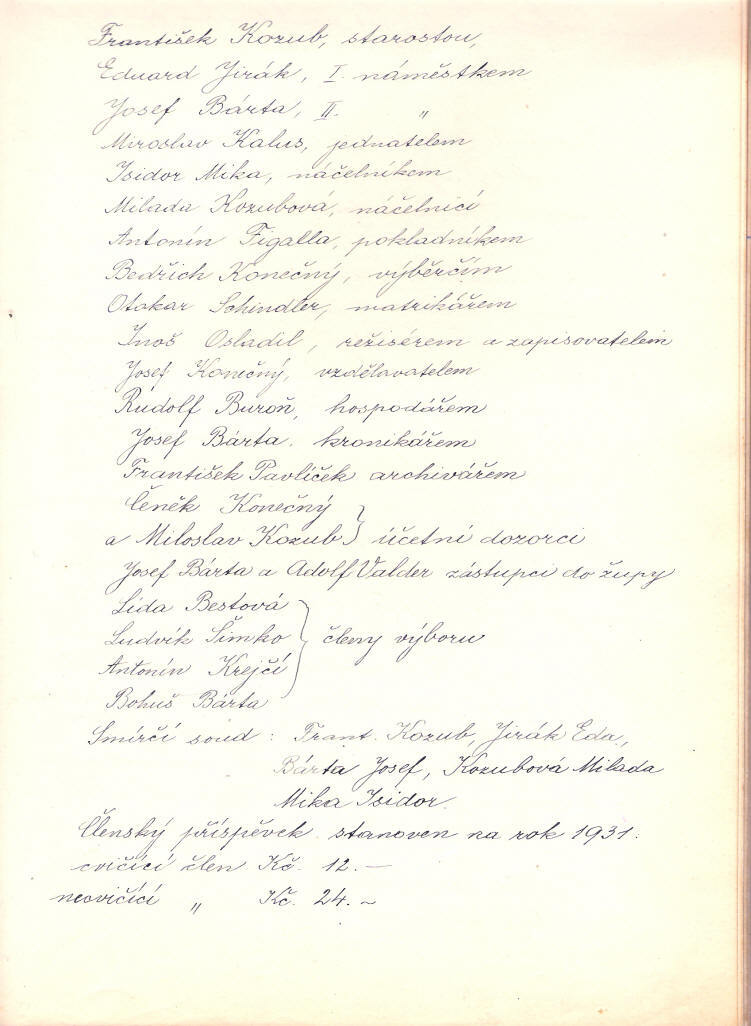 František Kozub, starostou,
Eduard Jirák, I. náměstkem
Josef Bárta, II. "
Miroslav Kalus, jednatelem
Isidor Mika, náčelníkem
Milada Kozubová, náčelnicí
Antonín Figalla, pokladníkem
Bedřich Konečný, výběrčím
Otokar Schindler, matrikářem
Inoš Osladil, režisérem a zapisovatelem
Josef Konečný, vzdělavatelem
Rudolf Buroň, hospodářem
Josef Bárta. kronikářem
František Pavlíček archivářem
Čeněk Konečný
a Miloslav Kozub } účetní dozorci
Josef Bárta a Adolf Valder zástupci do župy
Lída Bestová
Ludvík Šimko } členy výboru
Antonín Krejčí
Bohuš Bárta
Smírčí soud : Frant. Kozub, Jirák Eda.,
Bárta Josef, Kozubová Milada
Mika Isidor.
Členský příspěvek stanoven na rok 1931.
cvičící člen Kč. 12.—
necvičící " Kč. 24.—